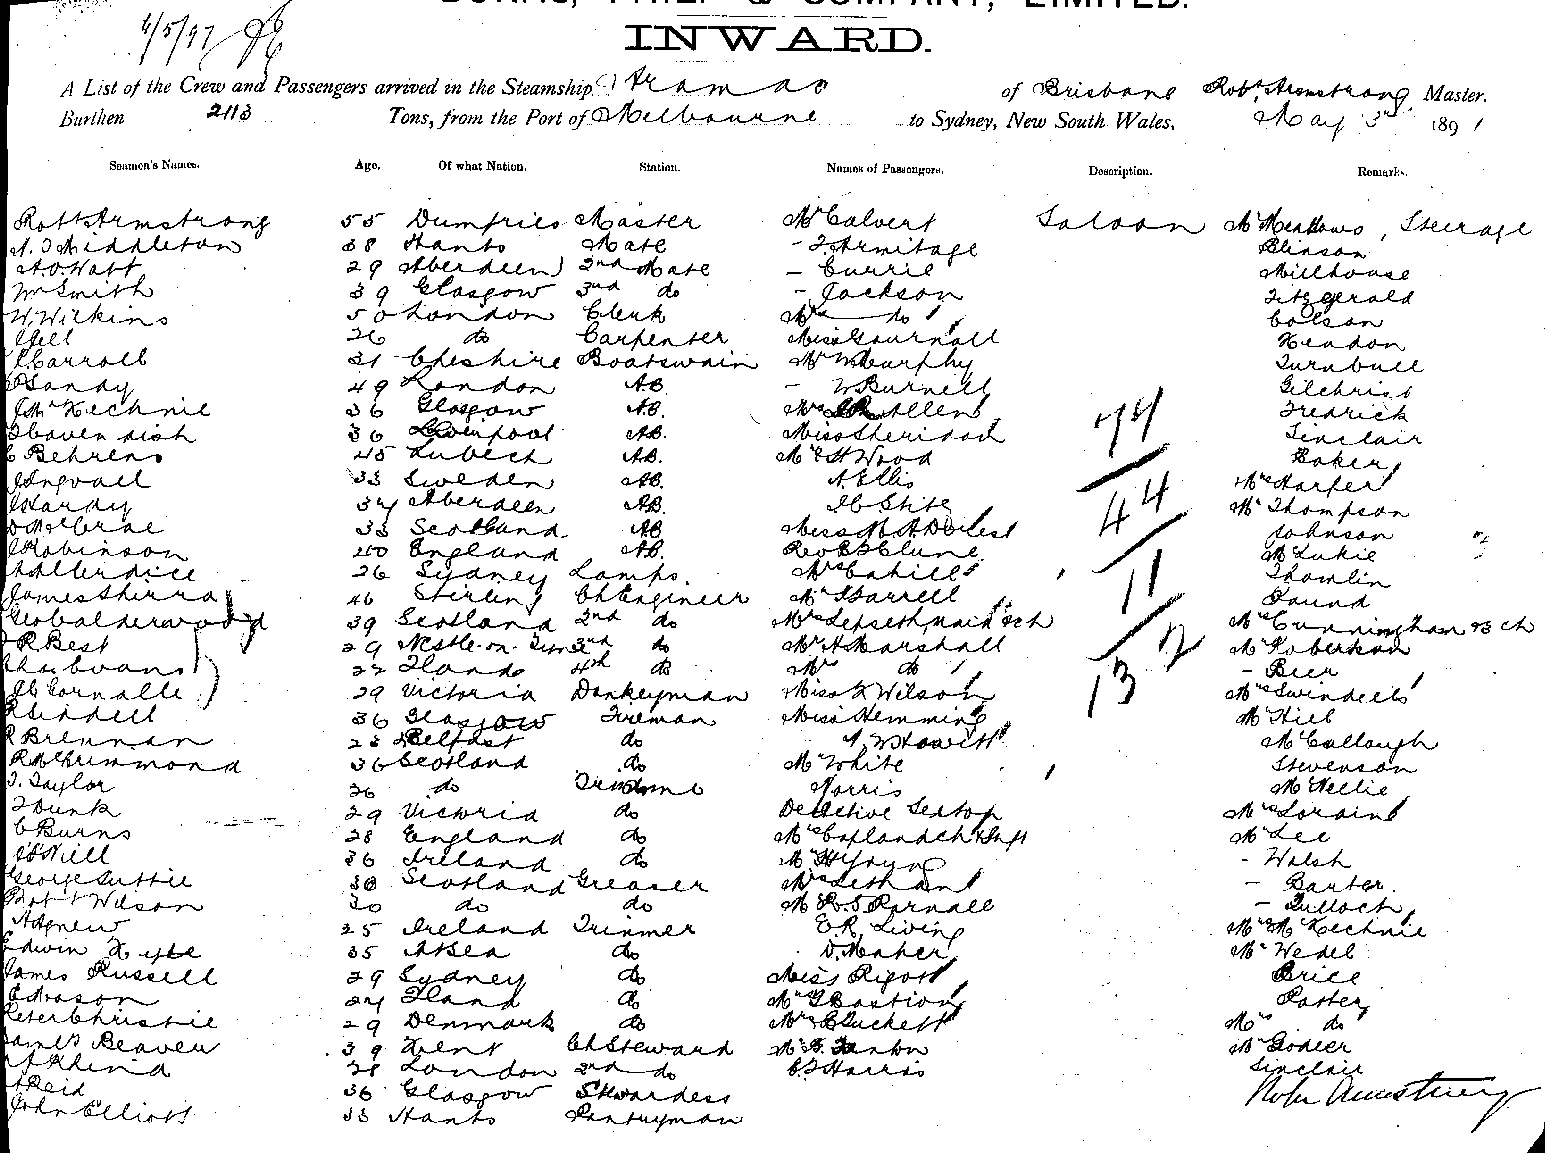 BURNS, PHILP & COMPANY, LIMITED.
INWARD.
4/5/97
A List of the Crew and Passengers arrived in the Steamship Aramac of Brisbane Robt. Armstrong, Master.
Burthen 2113 Tons, from the Port of Melbourne to Sydney, New South Wales, May 3rd 1897
Seamen's Names. Age. Of what Nation. Station. Names of Passengers. Description. Remarks.
Robt Armstrong 55 Dumfries Master Mr Calvert Saloon Mr Meadows, Steerage
Middleton 38 Hants Mate - Armitage
A.O. Watt 29 Aberdeen 2nd Mate - Currie Millhouse
Wm Smith 39 Glasgow 3rd do - Jackson Fitzgerald
W. Wilkins 50 London Clerk Mrs do Colson
Gill 26 do Carpenter Miss Gournall Headon
Carroll 31 Cheshire Boatswain Mr Murphy Turnbull
Sandy 49 London AB - W Burnell Gilchrist
J McKechnie 36 Glasgow AB. Mrs Allen Fredrick
Cavendish 36 Liverpool AB. Miss Sheridan Sinclair
C Behrens 45 Lubeck AB. Mr E H Wood Baker
J Ingvall 33 Sweden AB. A Ellis Mrs Harper
J Hardy 34 Aberdeen AB. Mr Thompson
D McCrae 33 Scotland AB Miss Johnson
J Robinson 40 England AB. Rev Clune McLukie
Allerdice 26 Sydney Lamps. Mrs Cahill Thomlin
James Shirra 46 Stirling Ch Engineer Mr Farrell Pound
Geo Calderwood 39 Scotland 2nd do Mrs Mrs Cunningham & ch
R Best 29 3rd do Mr A Marshall Mr Robertson
Chas Evans 22 4th do Mrs do - Bier
Cornalle 29 Victoria Donkeyman Miss K Wilson Mrs Swindells
R Liddell 36 Glasgow Fireman Miss Hemming Mr Hill
Brennan 28 Belfast do W Howitt McCullough
R McCrimmond 36 Scotland do Mr White Stevenson
T. Taylor 26 do Trimmer Norris McKellie
Dunk 29 Victoria do Detective Mrs Loraine
C Burns 28 England do Mrs Copland Mr Lee
Hill 36 Ireland do Mr H Young - Walsh
George Suttie 30 Scotland Greaser Mrs Letham - Barter.
Robt Wilson 30 do do Mr Parnall - Tulloch
Agnew 25 Ireland Trimmer E R Living Mrs McKechnie
Edwin Kyte 35 At Sea do D. Maher Mr Wedel
James Russell 29 Sydney do Miss Rigott Brice
E Mason 24 do Mrs Bastion
Peter Christie 29 Denmark do Mrs Puckett Mrs do
James Beaver 39 Kent Ch Steward Mr Fanton Mr Godier
Rhind 28 London 2nd do Harris Sinclair
Reid 36 Glasgow Stewardess
John Elliott 33 Hants Pantryman
74
44
11
12
13
Robt Armstrong